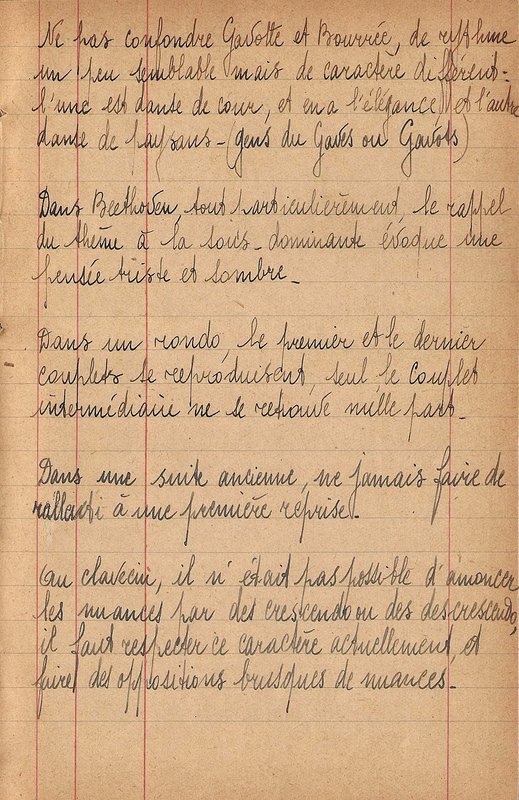 Ne pas confondre Gavotte et Bourrée, de rythme
un peu semblable mais de caractère différent :
l'une est danse de cour, et en a l'élégance, et l'autre
danse de paysans - (gens du Gaves ou Gavots)
Dans Beethoven, tout particulièrement, le rappel
du thème à la sous-dominante évoque une
pensée triste et sombre -
Dans un rondo, le premier et le dernier
couplets se reproduisent, seul le couplet
intermédiaire ne se retrouve nulle part -
Dans une suite ancienne, ne jamais faire de
à une première reprise -
Au clavecin, il n'était pas possible d'amoncer
les nuances par des crescendo ou des descrescendo,
il faut respecter ce caractère actuellement, et
faire des oppositions brusques de nuances -